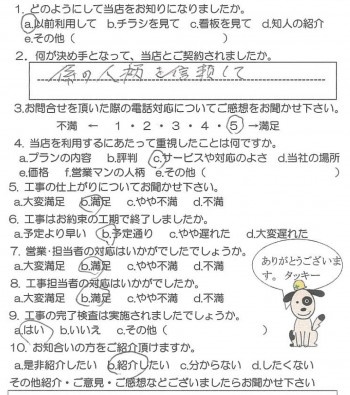 1. どのようにして当店をお知りになりましたか。
a.以前利用して b.チラシを見て c.看板を見て d.知人の紹介
e.その他（ ）
2. 何が決め手となって、当店とご契約されましたか。
係の人柄を信頼して
3.お問合せを頂いた際の電話対応についてご感想をお聞かせ下さい。
不満 ← 1・2・3・4・5 →満足
4. 当店を利用するにあたって重視したことは何ですか。
a.プランの内容 b.評判 c.サービスや対応のよさ d.当社の場所
e.価格 f.営業マンの人柄 e.その他（ ）
5. 工事の仕上がりについてお聞かせ下さい。
a.大変満足 b.満足 c.やや不満 d.不満
6. 工事はお約束の工期で終了しましたか。
a.予定より早い b.予定通り c.やや遅れた d.大変遅れた
7. 営業・担当者の対応はいかがでしたでしょうか。
a.大変満足 b.満足 c.やや不満 d.不満
8. 工事担当者の対応はいかがでしたか。
a.大変満足 b.満足 c.やや不満 d.不満
9. 工事の完了検査は実施されましたでしょうか。
a.はい b.いいえ c.その他（ ）
10. お知合いの方をご紹介頂けますか。
a.是非紹介したい b.紹介したい c.分からない d.したくない
その他紹介・ご意見・ご感想などございましたらお聞かせ下さい
ありがとうございま
す。 タッキー